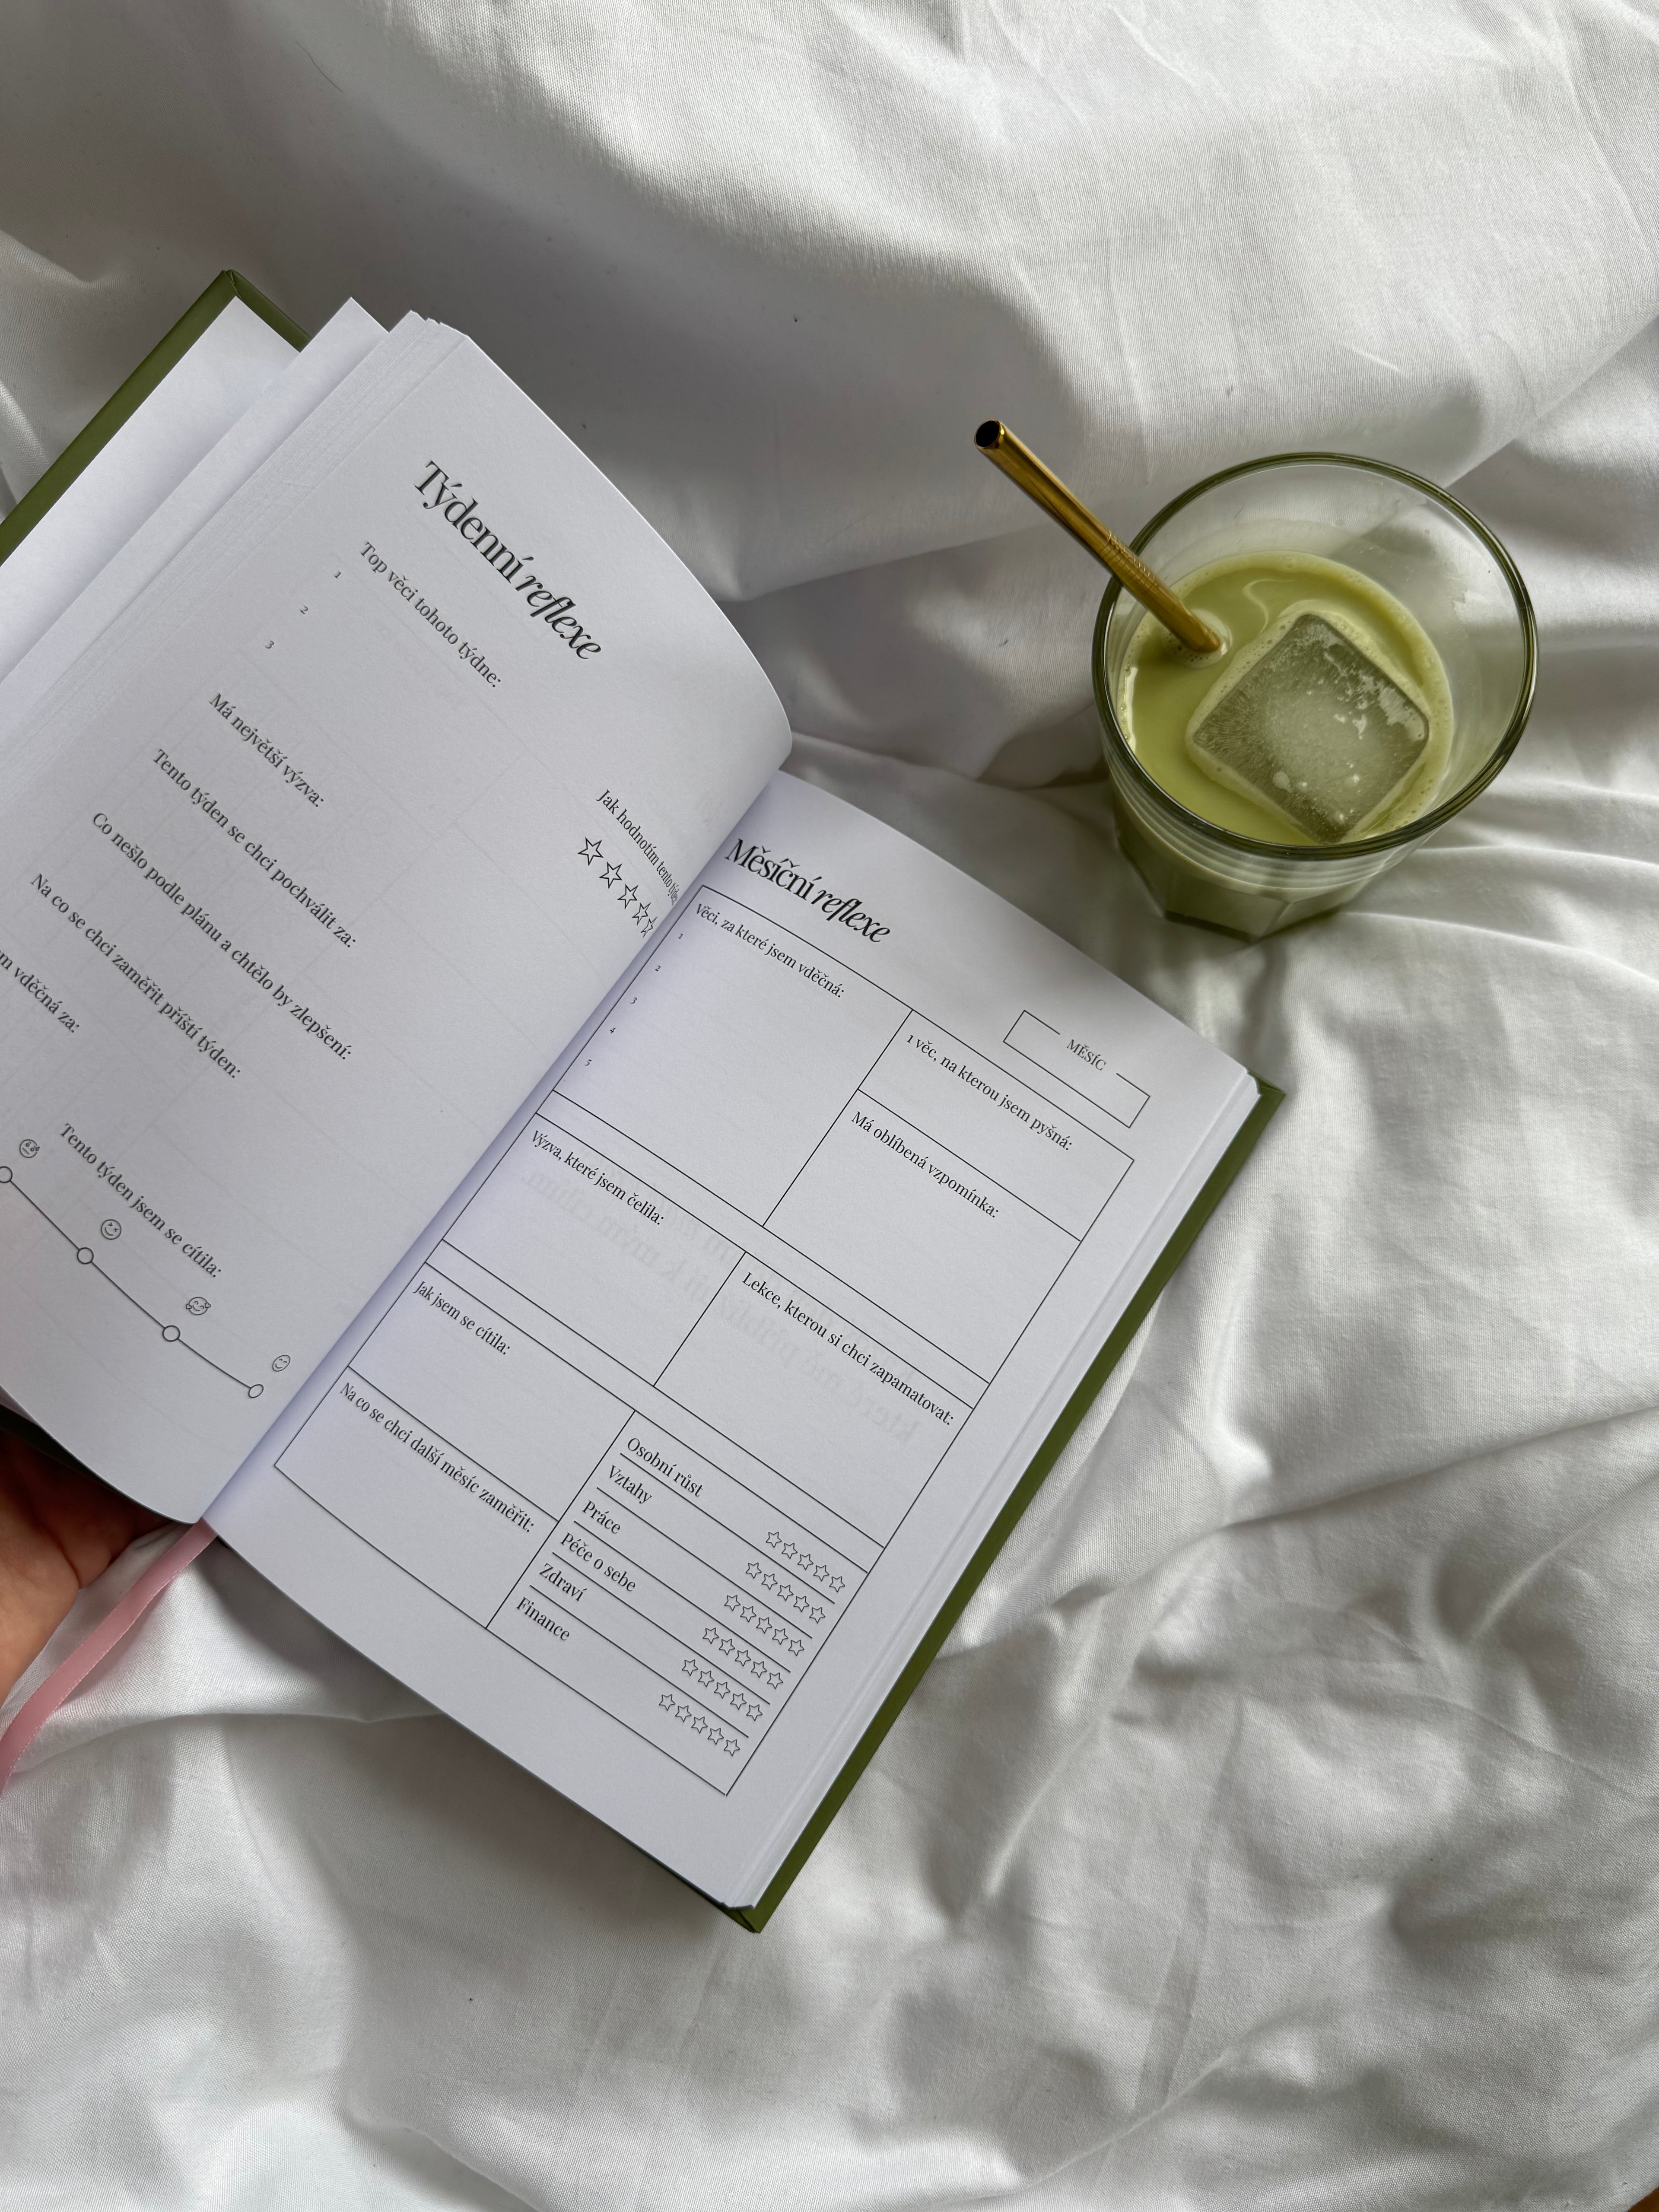 Týdenní reflexe
Top věci tohoto týdne:
1
2
3
Má největší výzva:
Tento týden se chci pochválit za:
Co nešlo podle plánu a chtělo by zlepšení:
Na co se chci zaměřit příští týden:
vděčná za:
Jak hodnotím tento
Tento týden jsem se cítila:
Měsíční reflexe
MĚSÍC
Věci, za které jsem vděčná:
1
2
3
4
5
1 věc, na kterou jsem pyšná:
Má oblíbená vzpomínka:
Výzva, které jsem čelila:
Lekce, kterou si chci zapamatovat:
Jak jsem se cítila:
Na co se chci další měsíc zaměřit:
Osobní růst
Vztahy
Práce
Péče o sebe
Zdraví
Finance